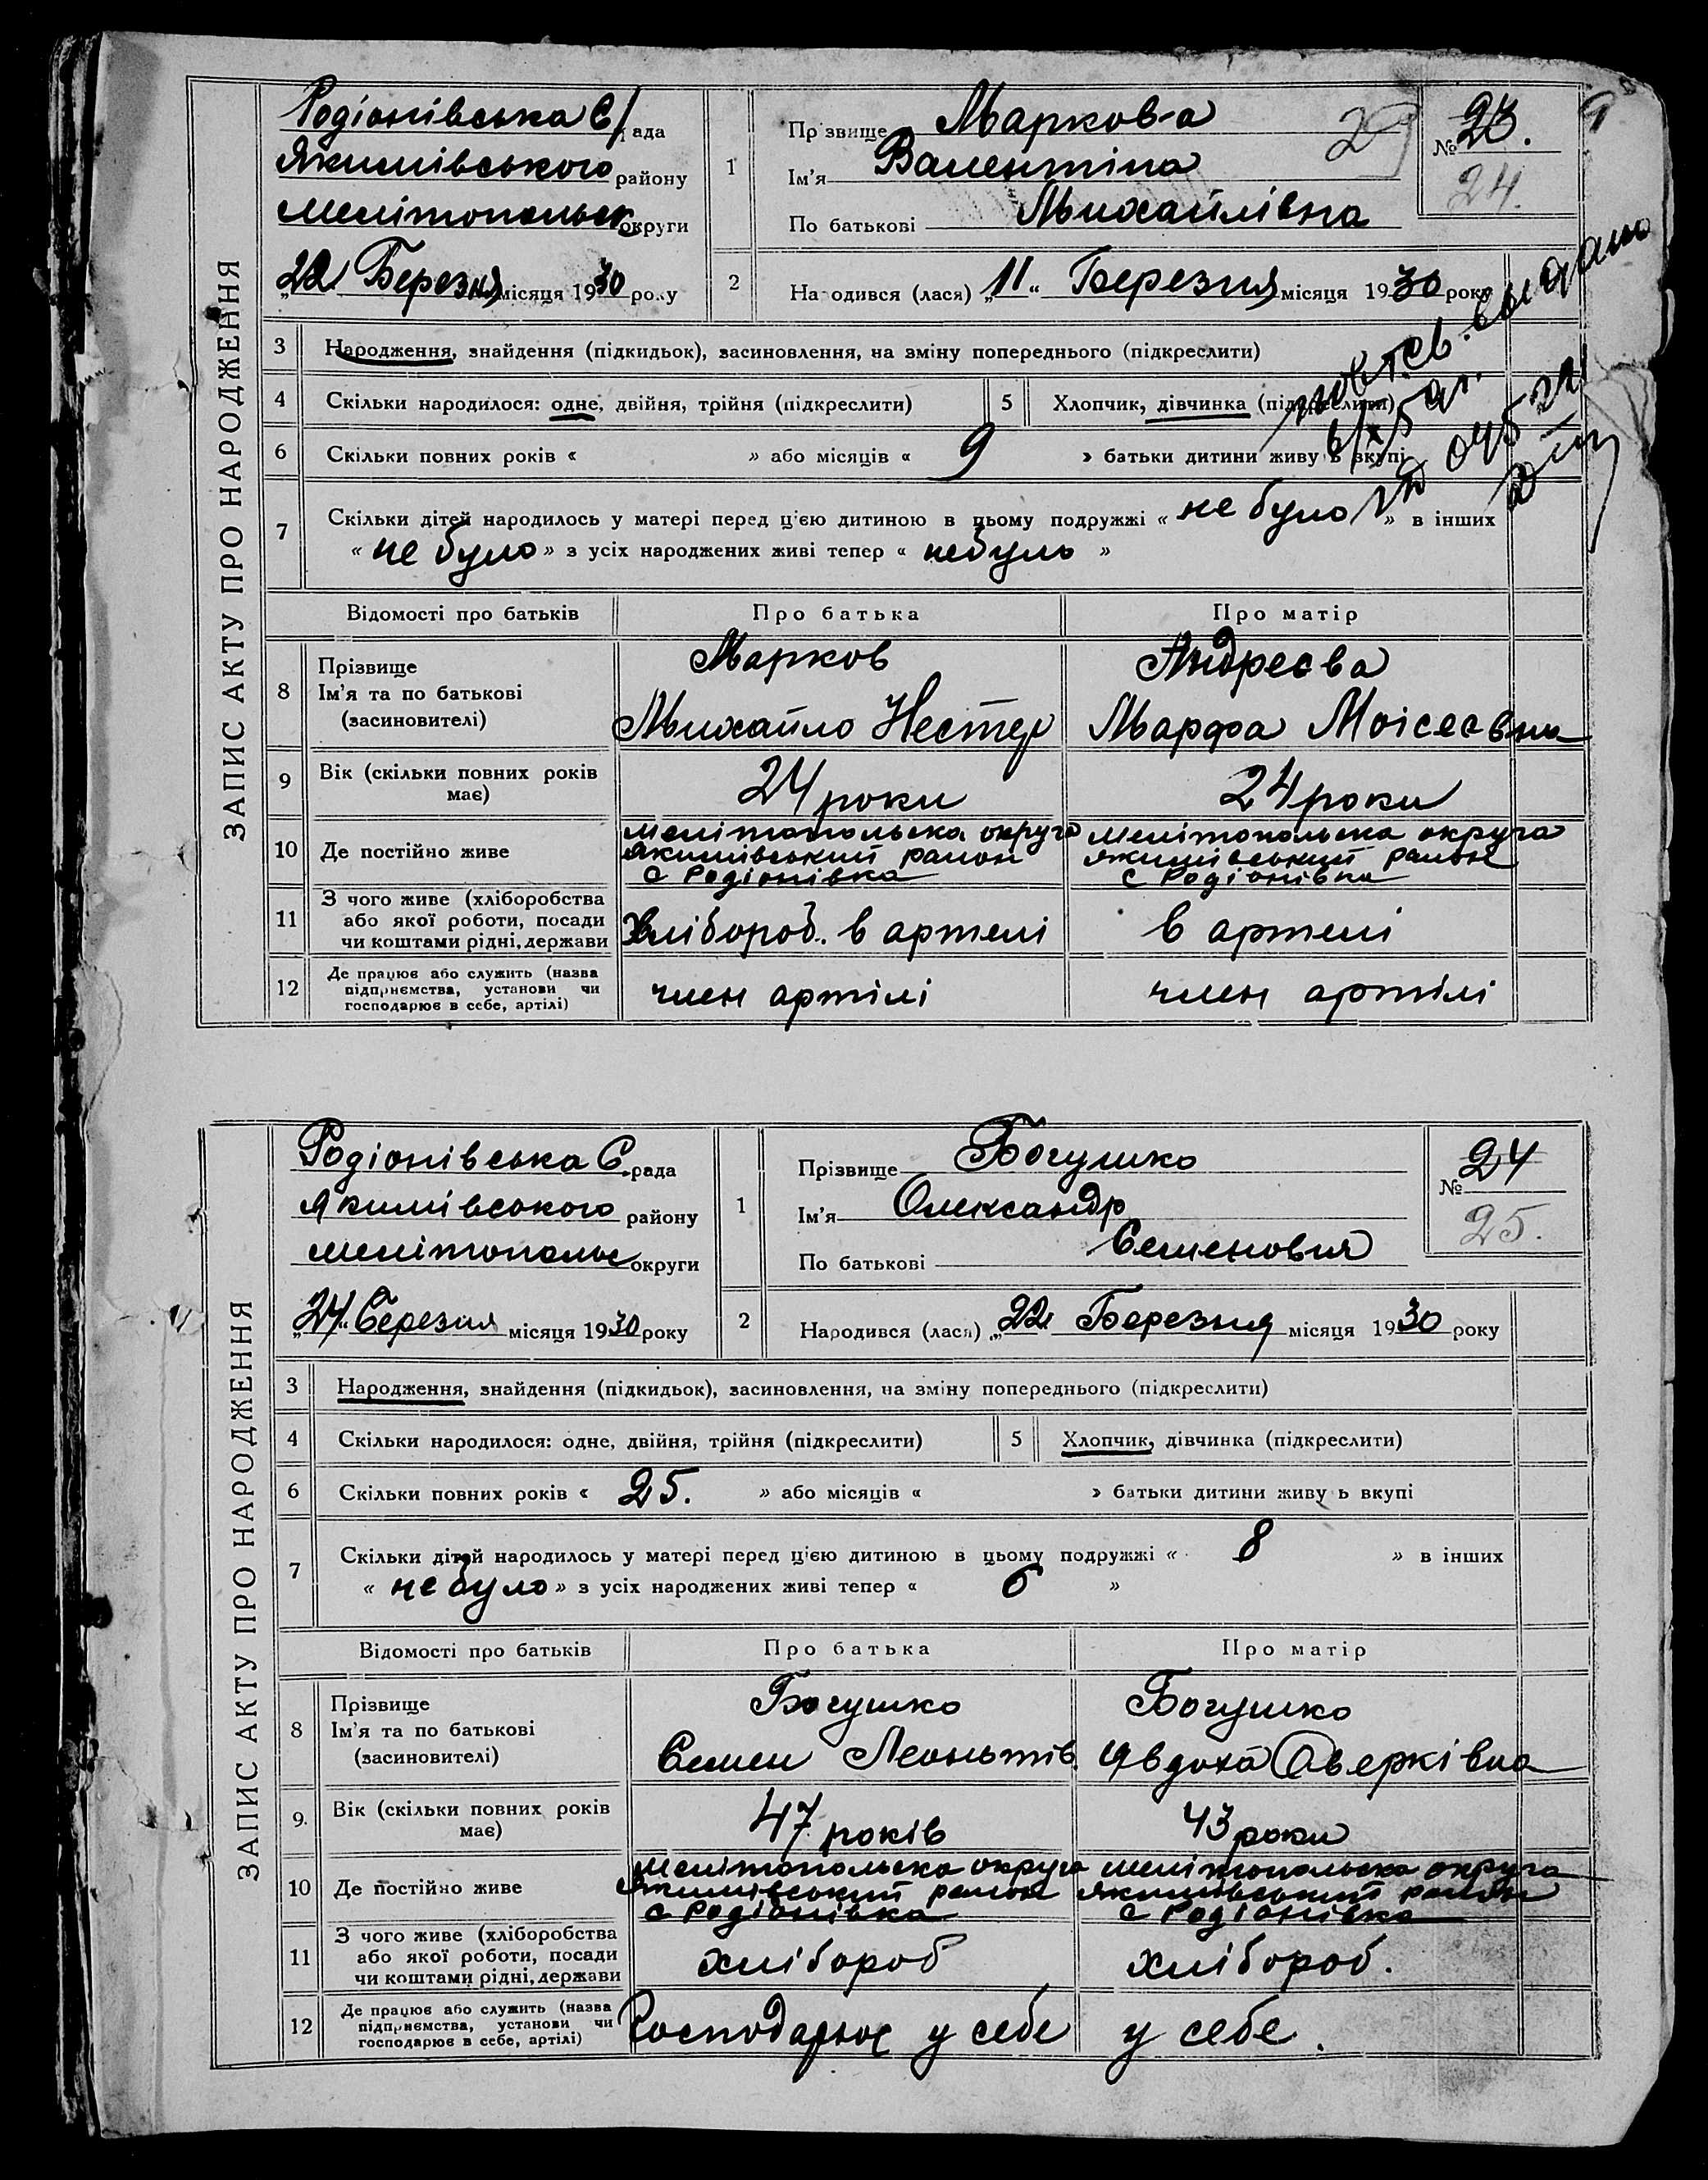 ЗАПИС АКТУ ПРО НАРОДЖЕННЯ
Родіонівська С/рада
Якимівського району
Мелітопольськ округи
„22" Березня місяця 1930 року
1
Прізвище Марков-а
Ім'я Валентіна
По батькові Михайлівна
29
№ 23.
24.
2
Народився (лася) „11" Березня місяця 1930 року
3 Народження, знайдення (підкидьок), засиновлення, на зміну попереднього (підкреслити)
4 Скільки народилося: одне, двійня, трійня (підкреслити)
5 Хлопчик, дівчинка (підкреслити)
6 Скільки повних років « » або місяців « 9 » батьки дитини живуть вкупі
7 Скільки дітей народилось у матері перед ц'єю дитиною в цьому подружжі « не було » в інших
« не було » з усіх народжених живі тепер « небуль »
Відомості про батьків Про батька Про матір
8 Прізвище Марков Андреєва
Ім'я та по батькові
(засиновителі) Михайло Нестер Марфа Моісеєвна
9 Вік (скільки повних років має) 24 роки 24 роки
10 Де постійно живе
Мелітопольска округа Мелітопольска округа
Якимівський район Якимівський район
с Родіонівка с Родіонівка
11 З чого живе (хліборобства
або якої роботи, посади
чи коштами рідні, держави
Хлібороб. в артелі в артелі
12 Де працює або служить (назва
підприємства, установи чи
господарює в себе, артілі)
член артілі член артілі
повт. св. выдано
ЗАПИС АКТУ ПРО НАРОДЖЕННЯ
Родіонівська С. рада
Якимівського району
Мелітопольс округи
„24" Березня місяця 1930 року
1
Прізвище Богушко
Ім'я Олександр
По батькові Семеновия
№ 24
25.
2
Народився (лася) „22" Березня місяця 1930 року
3 Народження, знайдення (підкидьок), засиновлення, на зміну попереднього (підкреслити)
4 Скільки народилося: одне, двійня, трійня (підкреслити)
5 Хлопчик, дівчинка (підкреслити)
6 Скільки повних років « 25. » або місяців « » батьки дитини живу ь вкупі
7 Скільки дітей народилось у матері перед ц'єю дитиною в цьому подружжі « 8 » в інших
« не було » з усіх народжених живі тепер « 6 »
Відомості про батьків Про батька Про матір
8 Прізвище Богушко Богушко
Ім'я та по батькові
(засиновителі) Семен Леоньтів. Явдоха Оверківна
9. Вік (скільки повних років має) 47 років 43 роки
10 Де постійно живе
Мелітопольска округа Мелітопольска округа
Якимівський район Якимівський район
с Родіонівка с Родіонівка
11 З чого живе (хліборобства
або якої роботи, посади
чи коштами рідні, держави
хлібороб хлібороб.
12 Де працює або служить (назва
підприємства, установи чи
господарює в себе, артілі)
Господарює у себе у себе.